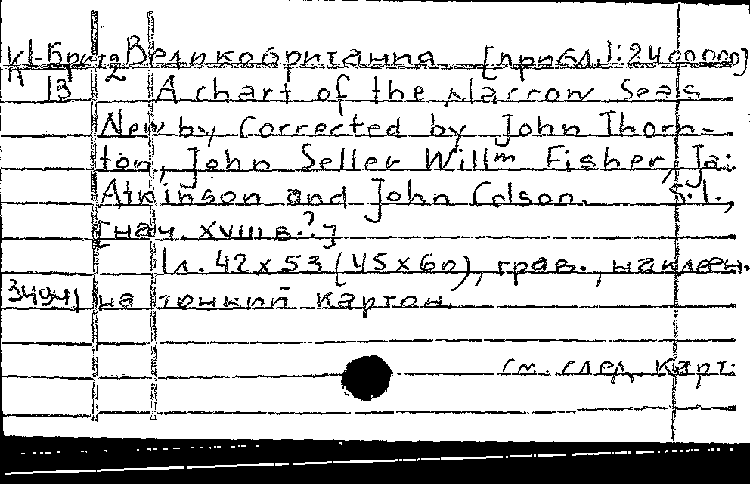 К1-Брит Великобритания [прибл.]: 2400000)
13 2 A chart of the Narrow Seas
Newby Corrected by John Thorn-
ton, John Seller Willm Fisher, Ja:
Atkinson and John Colson. S.l.,
[нач. XVIII в.?]
1 л. 42x53 (45x60), грав., наклеен.
34941 на тонкий картон.
См. след. карт.